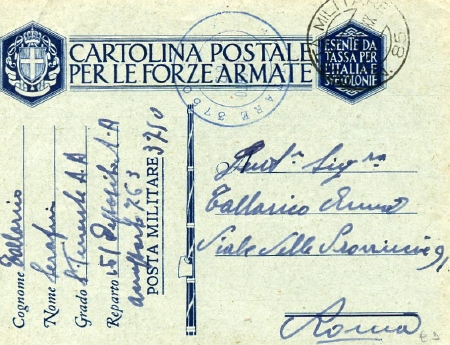 CARTOLINA POSTALE
PER LE FORZE ARMATE
ESENTE DA
TASSA PER
L'ITALIA E
COLONIE
MILITARE
85
3750
Cognome Tallarico
Nome Serafino
Grado S. Tenente S.A
Reparto 51 Deposito S-A
263
POSTA MILITARE 3750
Tallarico
Viale delle Provincie 91
Roma